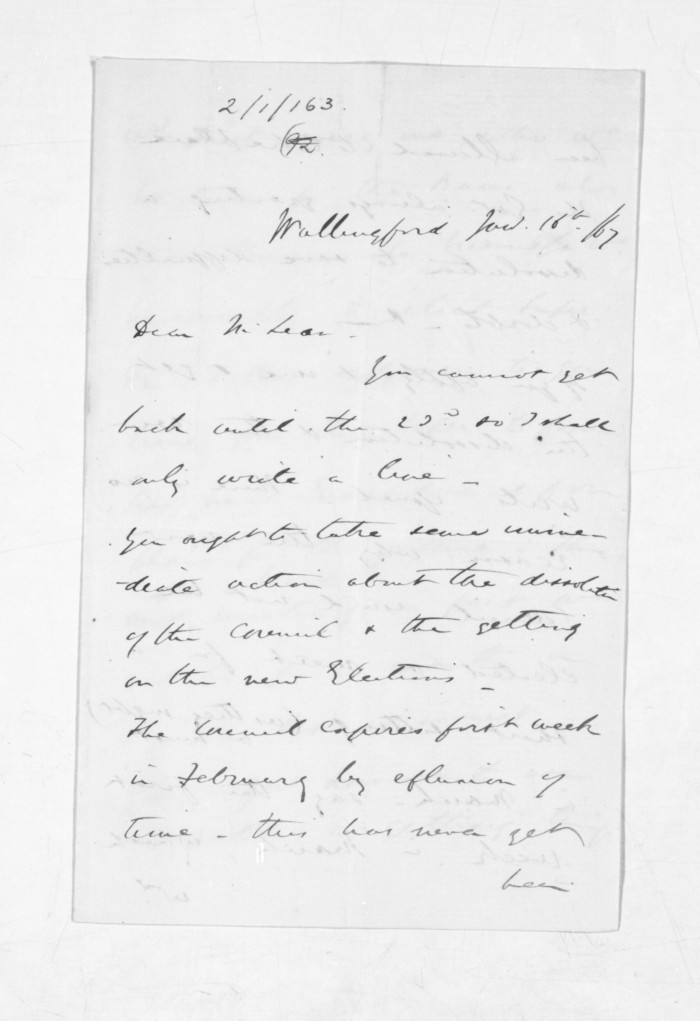 2/1/163.
Wallingford Jan. 16th /67
Dear McLean.
You cannot get
back until the 23d so I shall
only write a line -
You ought to take some imme-
diate action about the dissolution
of the Council & the getting
on the new Elections -
The Council expires first week
in February by efflusion of
time - this has never yet
been